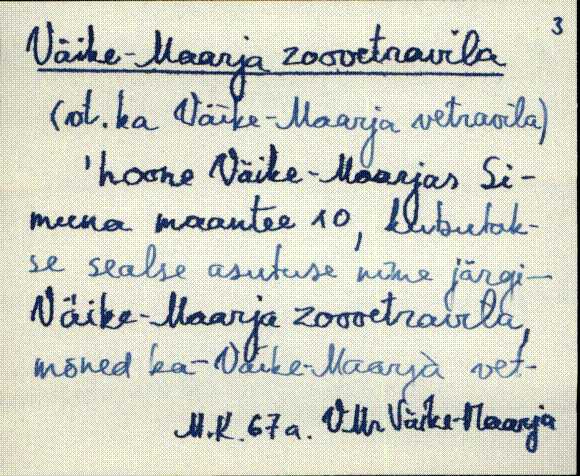 3
Väike-Maarja zoovetravila
(vt. ka Väike-Maarja vetravila)
'hoone Väike-Maarjas Si-
muna maantee 10, kutsutak-
se sealse asutuse nime järgi—
Väike-Maarja zoovetravila,
mõned ka - Väike-Maarja vet-
M.K. 67 a. VMr Väike-Maarja